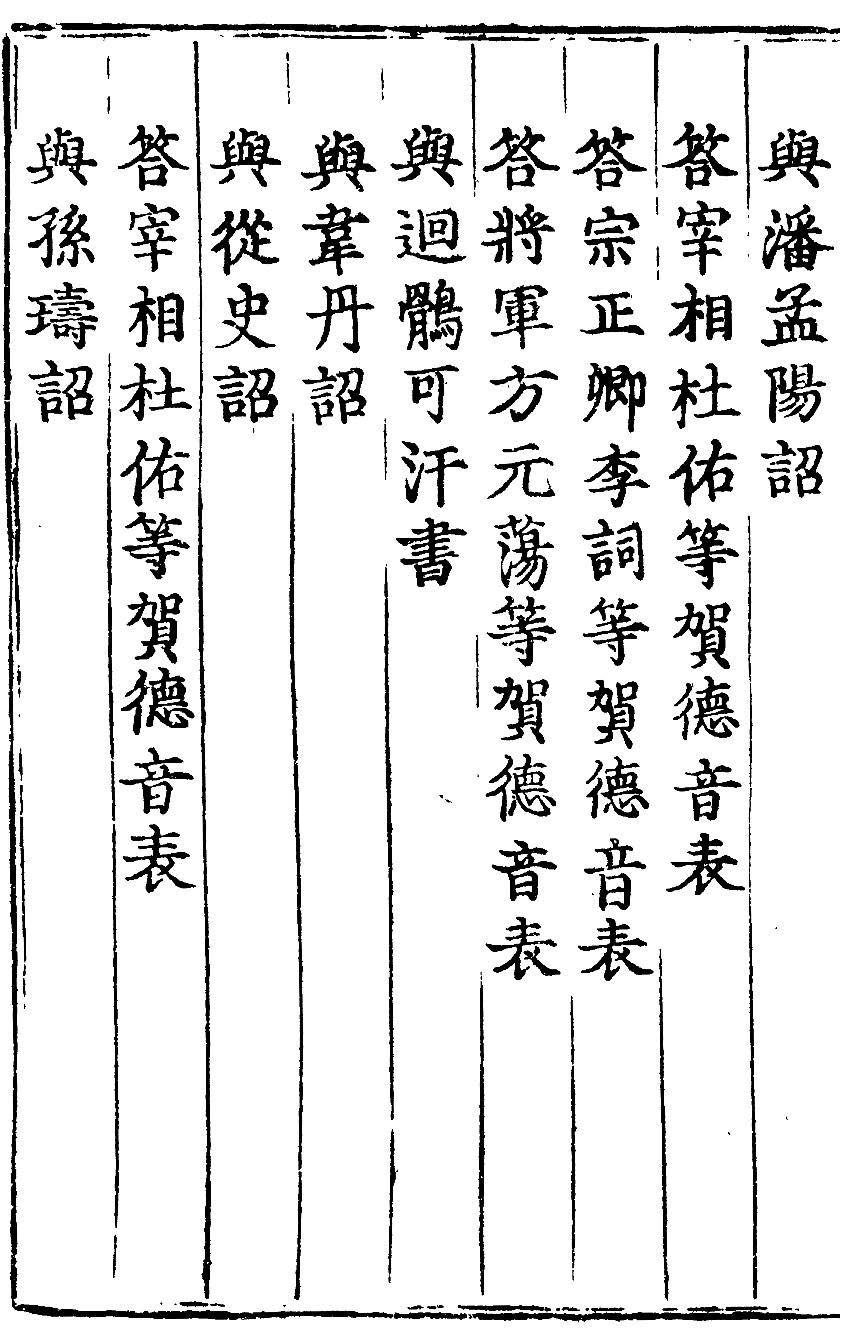 與潘孟陽詔
答宰相杜佑等賀德音表
答宗正卿李詞等賀德音表
答將軍方元蕩等賀德音表
與迴鶻可汗書
與韋丹詔
與從史詔
答宰相杜佑等賀德音表
與孫璹詔